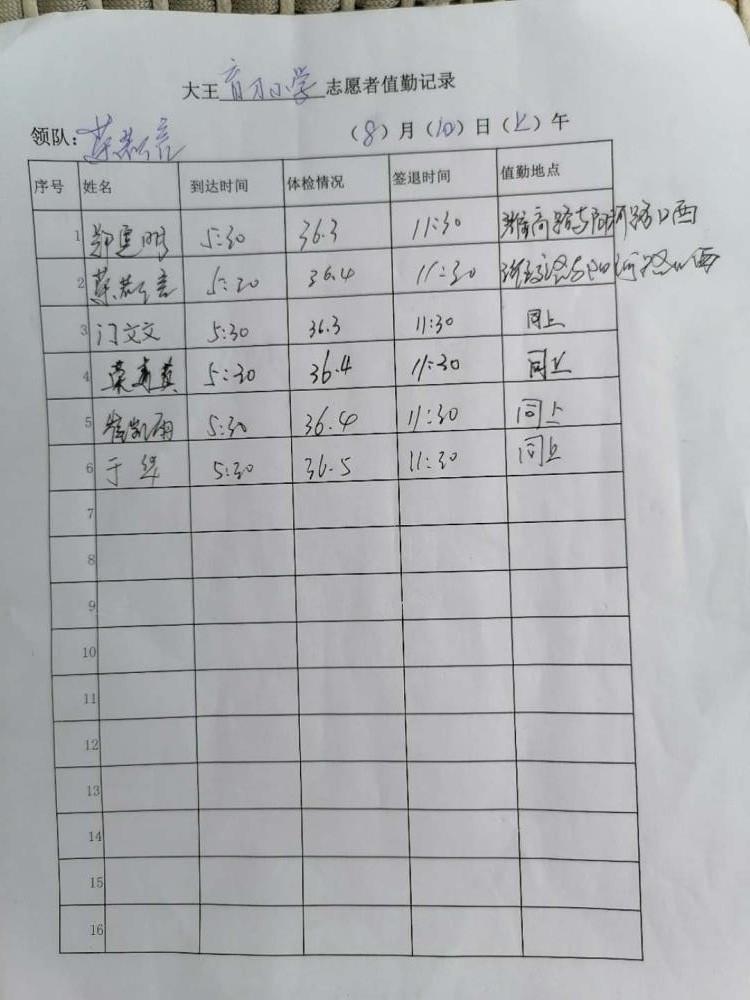 大王育才小学志愿者值勤记录
领队: （8）月（10）日（上）午
序号 姓名 到达时间 体检情况 签退时间 值勤地点
1 郑 鹏 5:30 36.3 11:30 潍高路与阳河路口西
2 5:30 36.4 11:30 潍高路与阳河路口西
3 门文文 5:30 36.3 11:30 同上
4 荣 真 5:30 36.4 11:30 同上
5 5:30 36.4 11:30 同上
6 于 5:30 36.5 11:30 同上
7
8
9
10
11
12
13
14
15
16